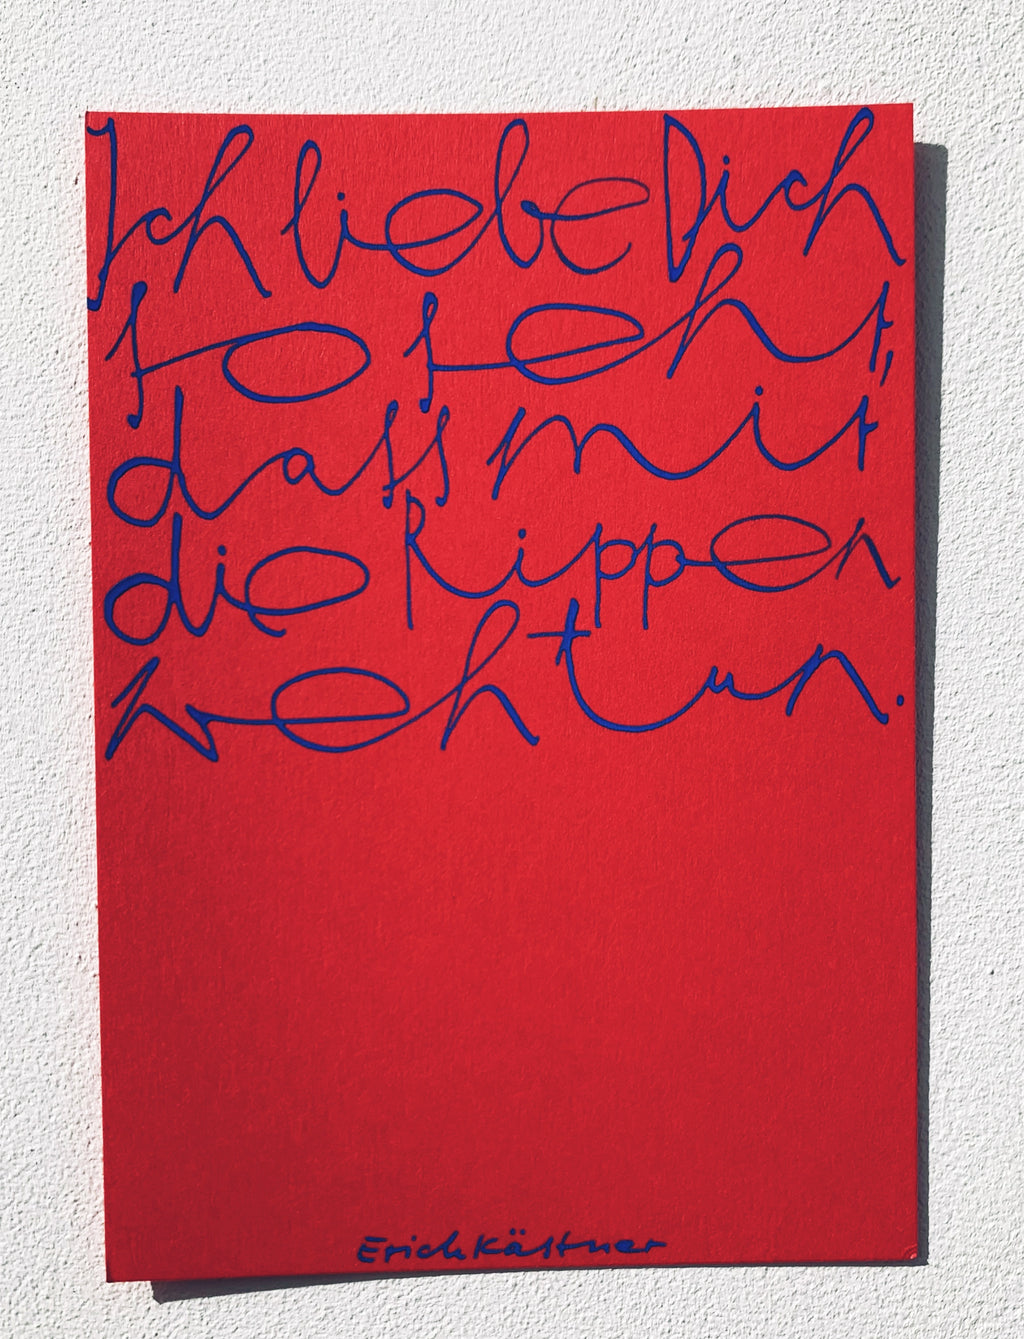 Ich liebe Dich
so seht,
dass mit
die Rippen
weh tun.
Erich Kästner